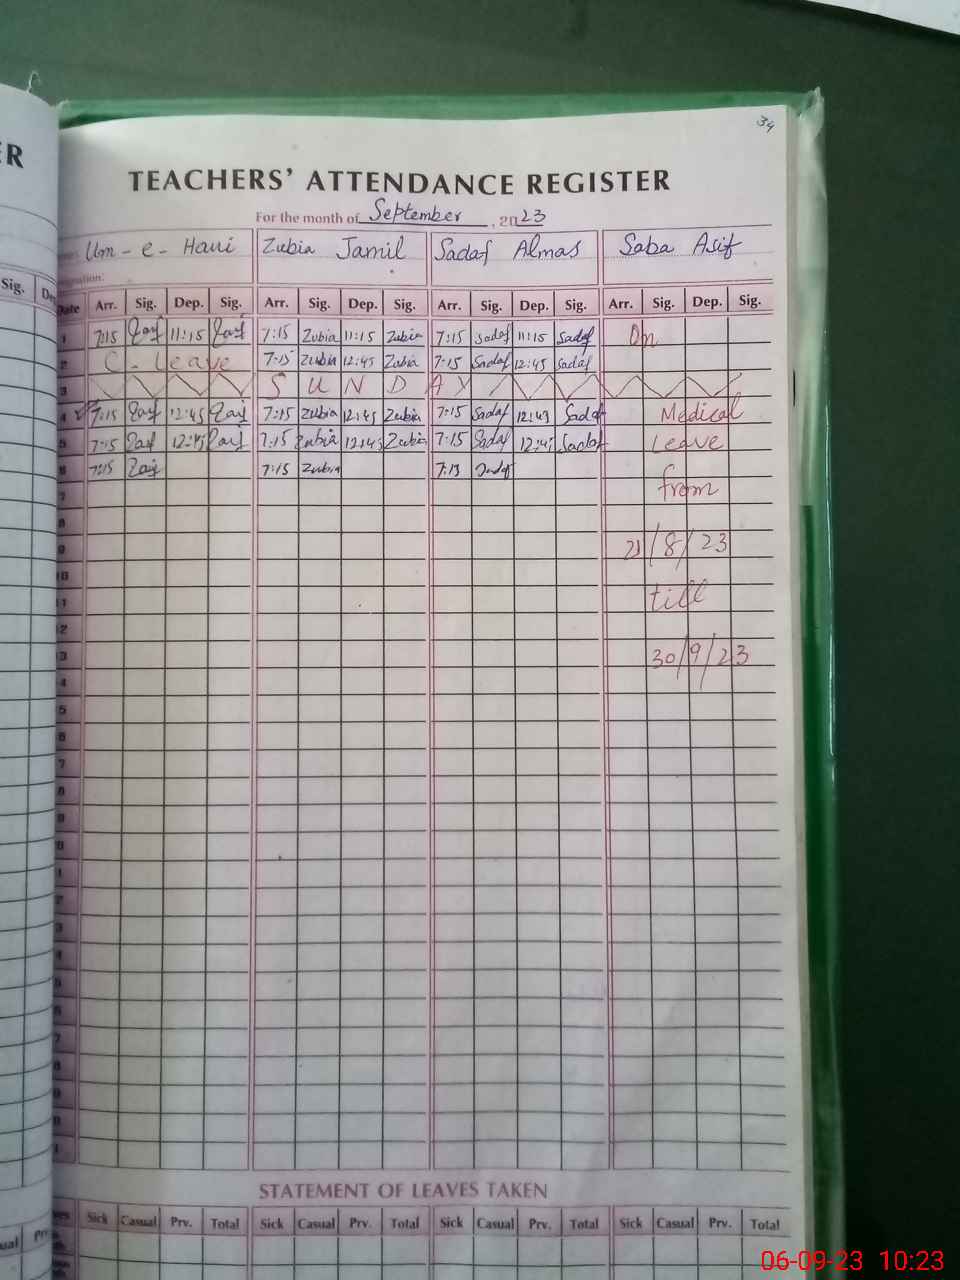 34
ER
TEACHERS' ATTENDANCE REGISTER
For the month of September, 2023
Um-e-Hani Zubia Jamil Sadaf Almas Saba Asif
Sig. De
Date Arr. Sig. Dep. Sig. Arr. Sig. Dep. Sig. Arr. Sig. Dep. Sig. Arr. Sig. Dep. Sig.
1 7:15 11:15 7:15 Zubia 11:15 Zubia 7:15 Sadaf 11:15 Sadaf On
2 C. Leave 7:15 Zubia 12:45 Zubia 7:15 Sadaf 12:45 Sadaf
3 SUNDAY
4 7:15 12:45 7:15 Zubia 12:45 Zubia 7:15 Sadaf 12:45 Sadaf Medical
5 7:15 12:45 7:15 Zubia 12:45 Zubia 7:15 Sadaf 12:45 Sadaf Leave
6 7:15 7:15 Zubia 7:15 Sadaf
7 from
8
9 21/8/23
10
11 till
12
3 30/9/23
4
5
6
7
8
9
0
1
2
3
4
5
6
7
8
9
0
1
STATEMENT OF LEAVES TAKEN
Sick Casual Prv. Total Sick Casual Prv. Total Sick Casual Prv. Total Sick Casual Prv. Total
ual Pr
06-09-23 10:23